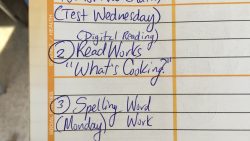 (Test Wednesday)
(Digital Reading)
② ReadWorks
"What's Cooking?"
③ Spelling Word
(Monday) Work